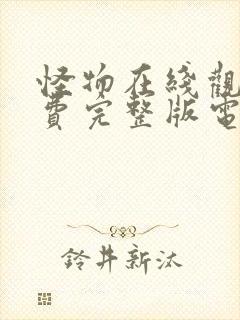 怪物在綫觀
費完整版電
鈴井新汰